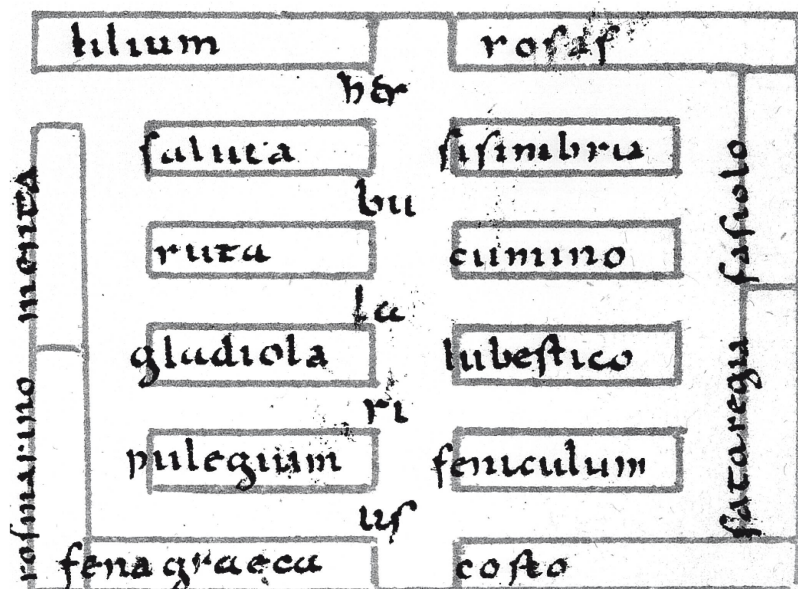 lilium
rosas
her
saluia
sisimbria
bu
ruta
cumino
la
gladiola
lubestico
ri
pulegium
feniculum
us
fena graeca
costo
menta
rosmarino
fasiolo
sataregia